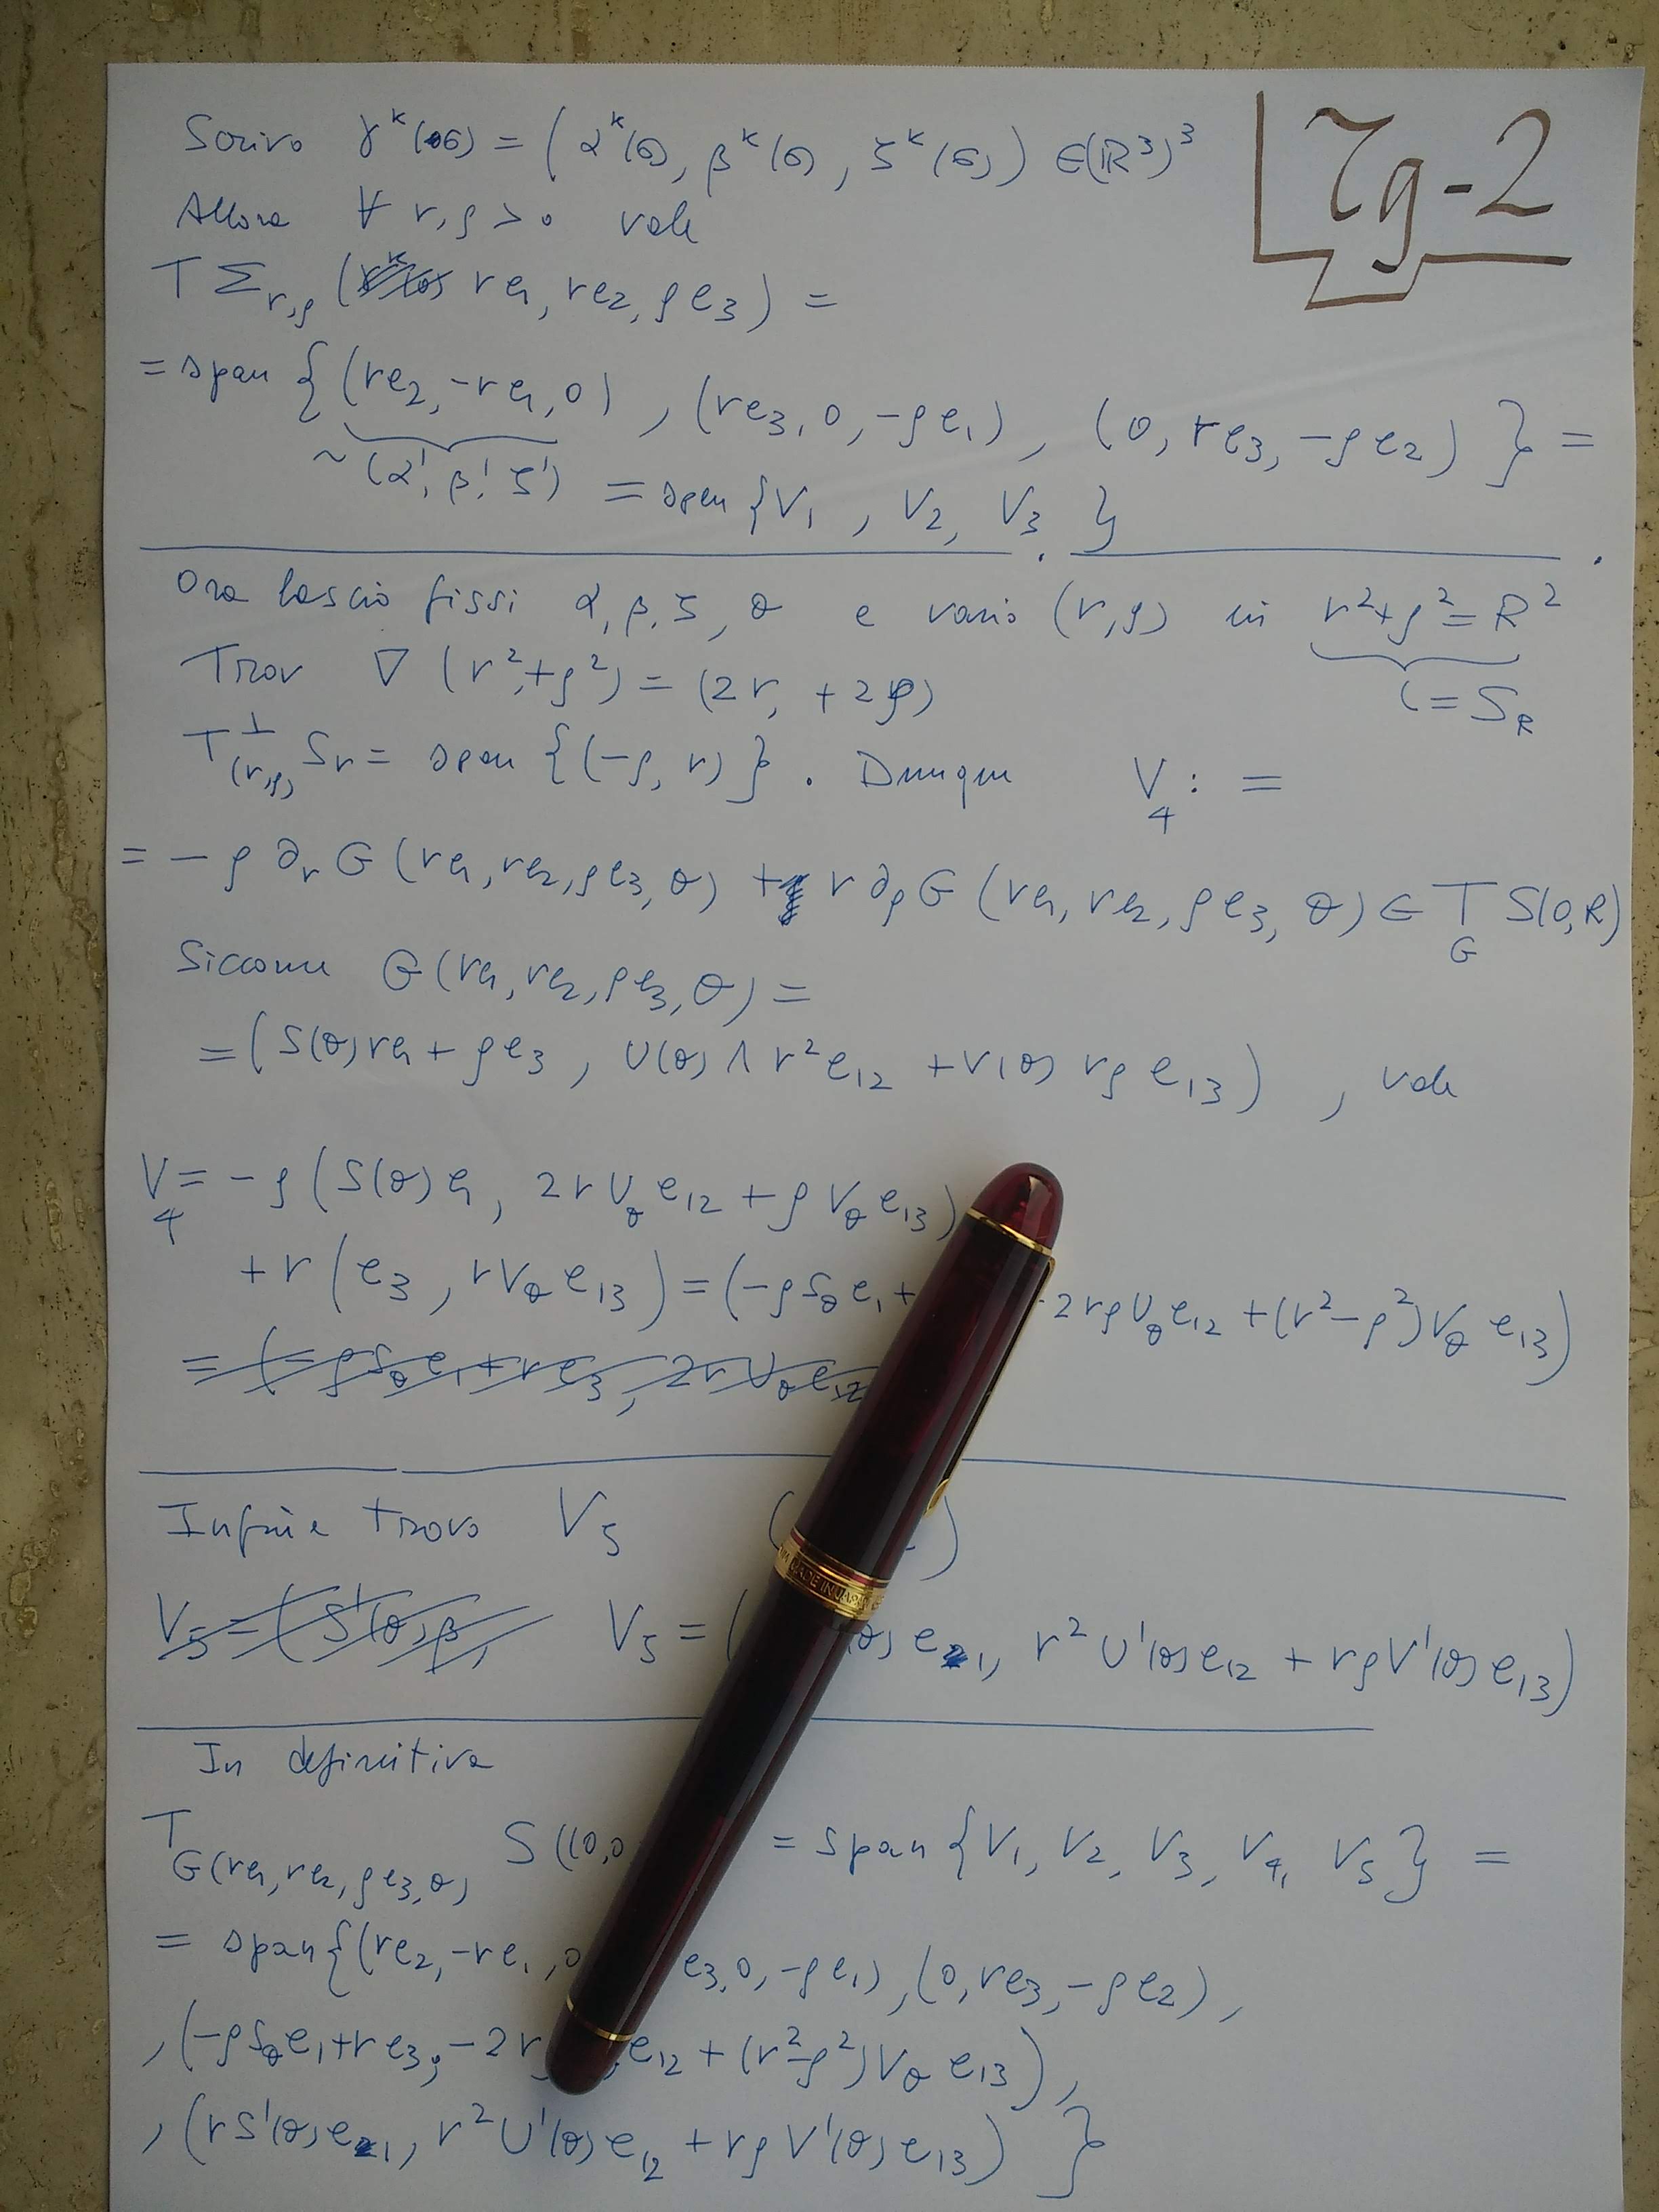 Scrivo γ^k(σ) = (α^k(σ), β^k(σ), ζ^k(σ)) ∈ (ℝ³)³
7g-2
Allora ∀ r, ρ > 0 vale
TΣ_{r,ρ} (re₁, re₂, ρe₃) =
= span {(re₂, -re₁, 0), (re₃, 0, -ρe₁), (0, re₃, -ρe₂)} =
~ (α', β', ζ') = span {V₁, V₂, V₃}
Ora lascio fissi α, β, ζ, θ e vario (r, ρ) in r² + ρ² = R²
Trov ∇ (r² + ρ²) = (2r, + 2ρ) (= S_R
T^⊥_{(r,ρ)} S_r = span {(-ρ, r)}. Dunque V₄ : =
= - ρ ∂_r G (re₁, re₂, ρe₃, θ) + r ∂_ρ G (re₁, re₂, ρe₃, θ) ∈ T_G S(0, R)
Siccome G(re₁, re₂, ρe₃, θ) =
= (S(θ)re₁ + ρe₃, U(θ) ∧ r²e₁₂ + V(θ) rρ e₁₃), vale
V₄ = -ρ (S(θ)e₁, 2r U_θ e₁₂ + ρ V_θ e₁₃)
+ r (e₃, rV_θ e₁₃) = (-ρS_θ e₁ + 2rρU_θ e₁₂ + (r² - ρ²)V_θ e₁₃)
= (-ρS_θ e₁ + re₃, 2r U_θ e₁₂
Infine trovo V₅
V₅ = (S'(θ)β, V₅ = ( (θ) e₁, r² U'(θ) e₁₂ + rρV'(θ) e₁₃)
In definitiva
T_{G(re₁, re₂, ρe₃, θ)} S((0,0 = span {V₁, V₂, V₃, V₄, V₅} =
= span{(re₂, -re₁, 0 e₃, 0, -ρe₁), (0, re₃, -ρe₂),
, (-ρS_θ e₁ + re₃, -2r e₁₂ + (r² - ρ²)V_θ e₁₃),
, (rS'(θ)e₁, r²U'(θ)e₁₂ + rρV'(θ)e₁₃) }
MADE IN JAPAN